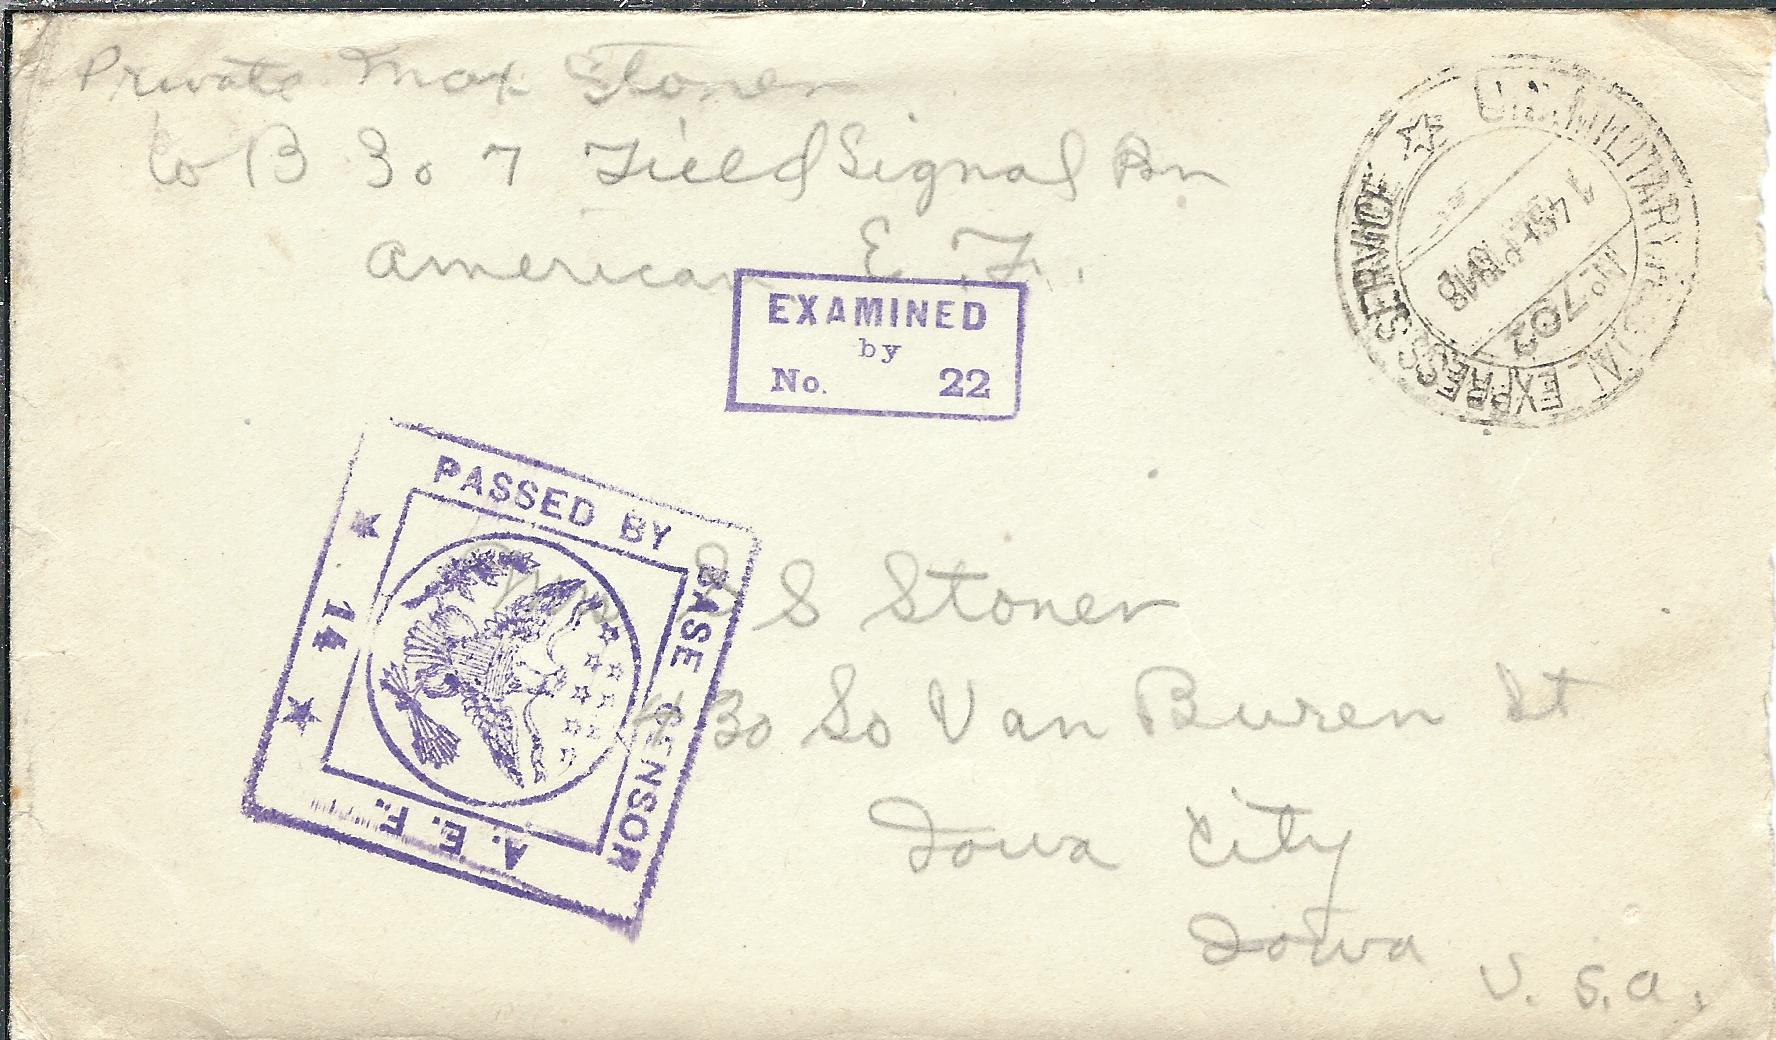 Private Max Stoner
Co B 307 Field Signal Bn
American E. F.
EXAMINED
by
No. 22
U.S. MILITARY POSTAL EXPRESS SERVICE
1918
No 702
PASSED BY
BASE CENSOR
A. E. F.
14
S Stoner
430 So Van Buren St
Iowa City
Iowa
U. S. A.